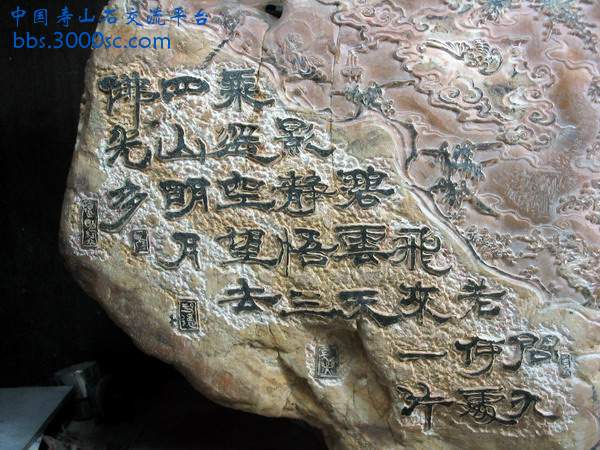 中国寿山石交流平台
bbs.3000sc.com
問九
老何處
飛來一片
碧雲天
影靜悟三
乘空望去
四山明月
佛光多